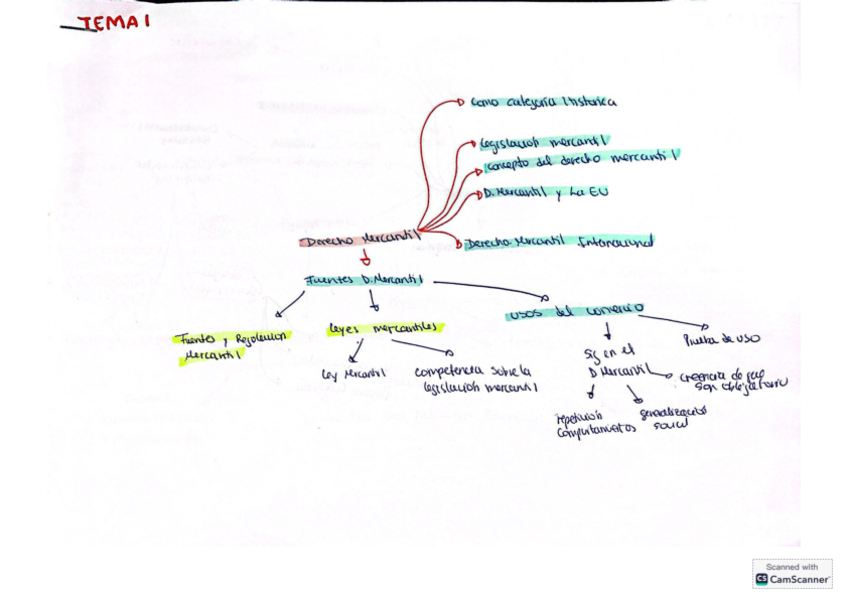 TEMA 1
Como categoría histórica
Legislación mercantil
Concepto del derecho mercantil
D. Mercantil y La EU
Derecho Mercantil
Derecho Mercantil Internacional
Fuentes D. Mercantil
Usos del comercio
Fuentes y Regulación
Mercantil
Leyes mercantiles
Prueba de uso
Sig en el
D Mercantil
Ley Mercantil
competencia sobre la
legislación mercantil
creencia de que
son obligatorio
repetición
comportamientos
generalización
social
Scanned with
CS CamScanner